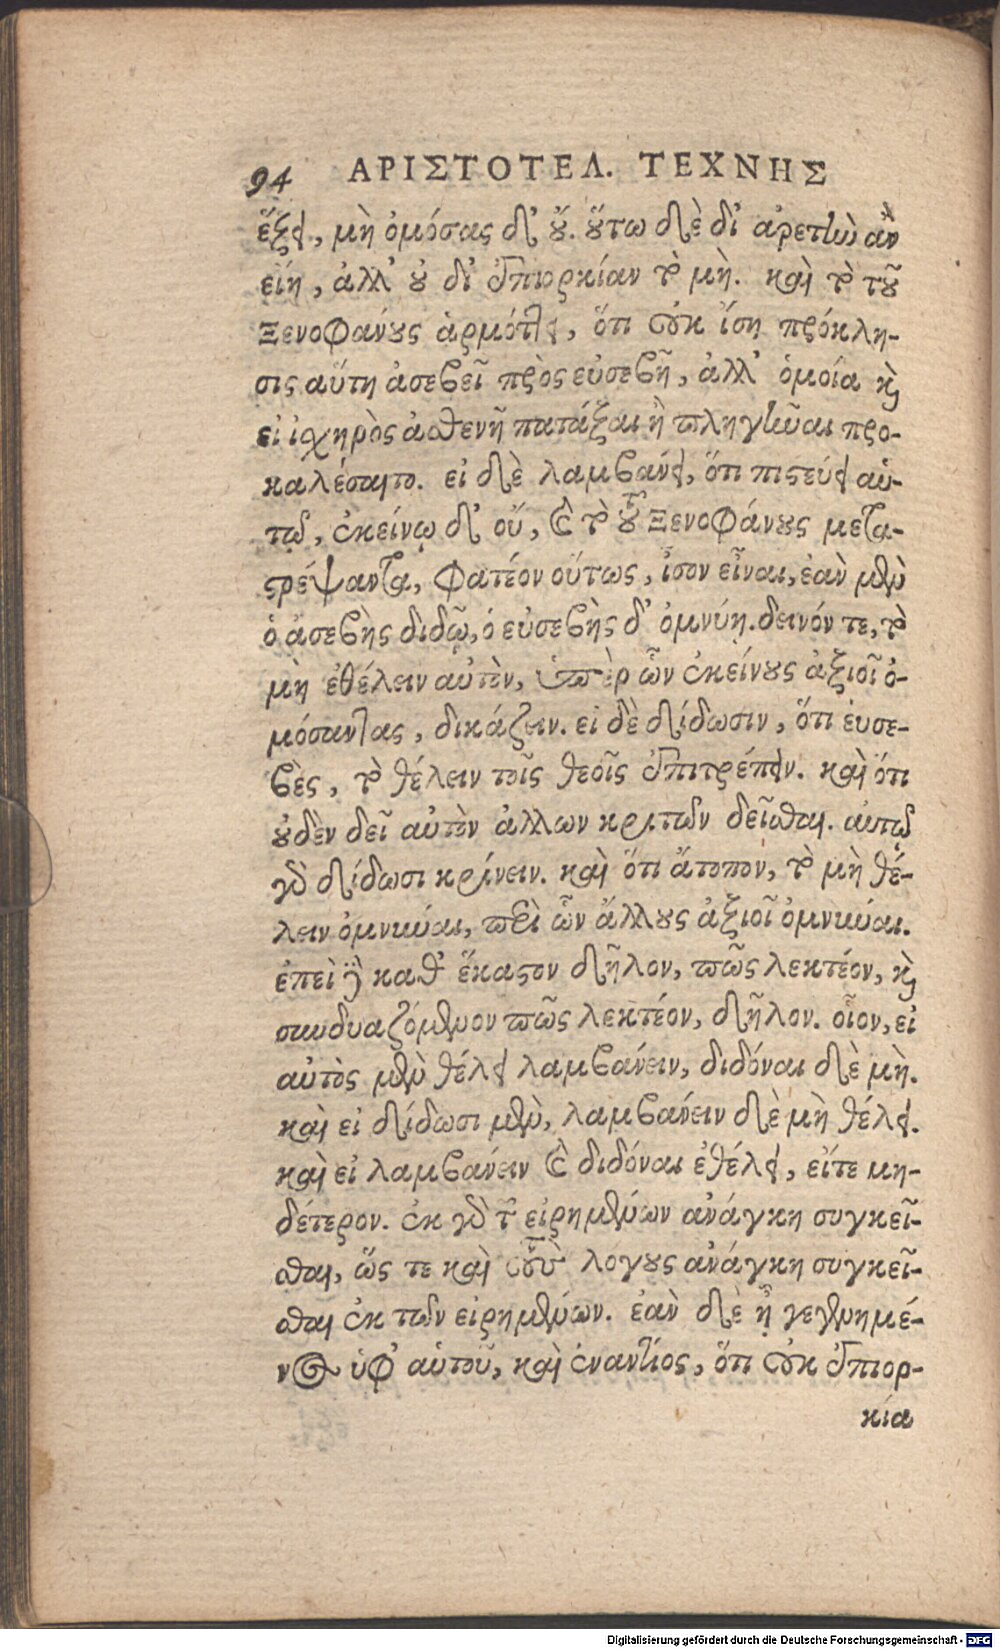 94 ΑΡΙΣΤΟΤΕΛ. ΤΕΧΝΗΣ
ἕξει, μὴ ὀμόσας δ' οὔ. οὕτω δὲ δι' ἀρετὴν ἂν
εἴη, ἀλλ' οὐ δι' ἐπιορκίαν τὸ μὴ. καὶ τὸ τοῦ
Ξενοφάνους ἁρμόττει, ὅτι οὐκ ἴση πρόκλη-
σις αὕτη ἀσεβεῖ πρὸς εὐσεβῆ, ἀλλ' ὁμοία καὶ
εἰ ἰσχηρὸς ἀσθενῆ πατάξαι ἢ πληγῆναι προ-
καλέσαιτο. εἰ δὲ λαμβάνει, ὅτι πιστεύει αὑ-
τῷ, ἐκείνῳ δ' οὔ, καὶ τὸ τοῦ Ξενοφάνους μετα-
στρέψαντα, φατέον οὕτως, ἴσον εἶναι, ἐὰν μὲν
ὁ ἀσεβὴς διδῷ, ὁ εὐσεβὴς δ' ὀμνύῃ. δεινόν τε, τὸ
μὴ ἐθέλειν αὐτὸν, ὑπὲρ ὧν ἐκείνους ἀξιοῖ ὀ-
μόσαντας, δικάζειν. εἰ δὲ δίδωσιν, ὅτι ἐυσε-
βὲς, τὸ θέλειν τοῖς θεοῖς ἐπιτρέπειν. καὶ ὅτι
οὐδὲν δεῖ αὐτὸν ἄλλων κριτῶν δεῖσθαι. αὐτῷ
γὰρ δίδωσι κρίνειν. καὶ ὅτι ἄτοπον, τὸ μὴ θέ-
λειν ὀμνύναι, περὶ ὧν ἄλλους ἀξιοῖ ὀμνύναι.
ἐπεὶ δὲ καθ' ἕκαστον δῆλον, πῶς λεκτέον, καὶ
συνδυαζόμενον πῶς λεκτέον, δῆλον. οἷον, εἰ
αὐτὸς μὲν θέλει λαμβάνειν, διδόναι δὲ μὴ.
καὶ εἰ δίδωσι μὲν, λαμβάνειν δὲ μὴ θέλει.
καὶ εἰ λαμβάνειν καὶ διδόναι ἐθέλει, εἴτε μη-
δέτερον. ἐκ γὰρ τῶν εἰρημένων ἀνάγκη συγκεῖ-
σθαι, ὥς τε καὶ τοὺς λόγους ἀνάγκη συγκεῖ-
σθαι ἐκ τῶν εἰρημένων. ἐὰν δὲ ᾖ γεγενημέ-
νος ὑφ' αὑτοῦ, καὶ ἐναντίος, ὅτι οὐκ ἐπιορ-
κία